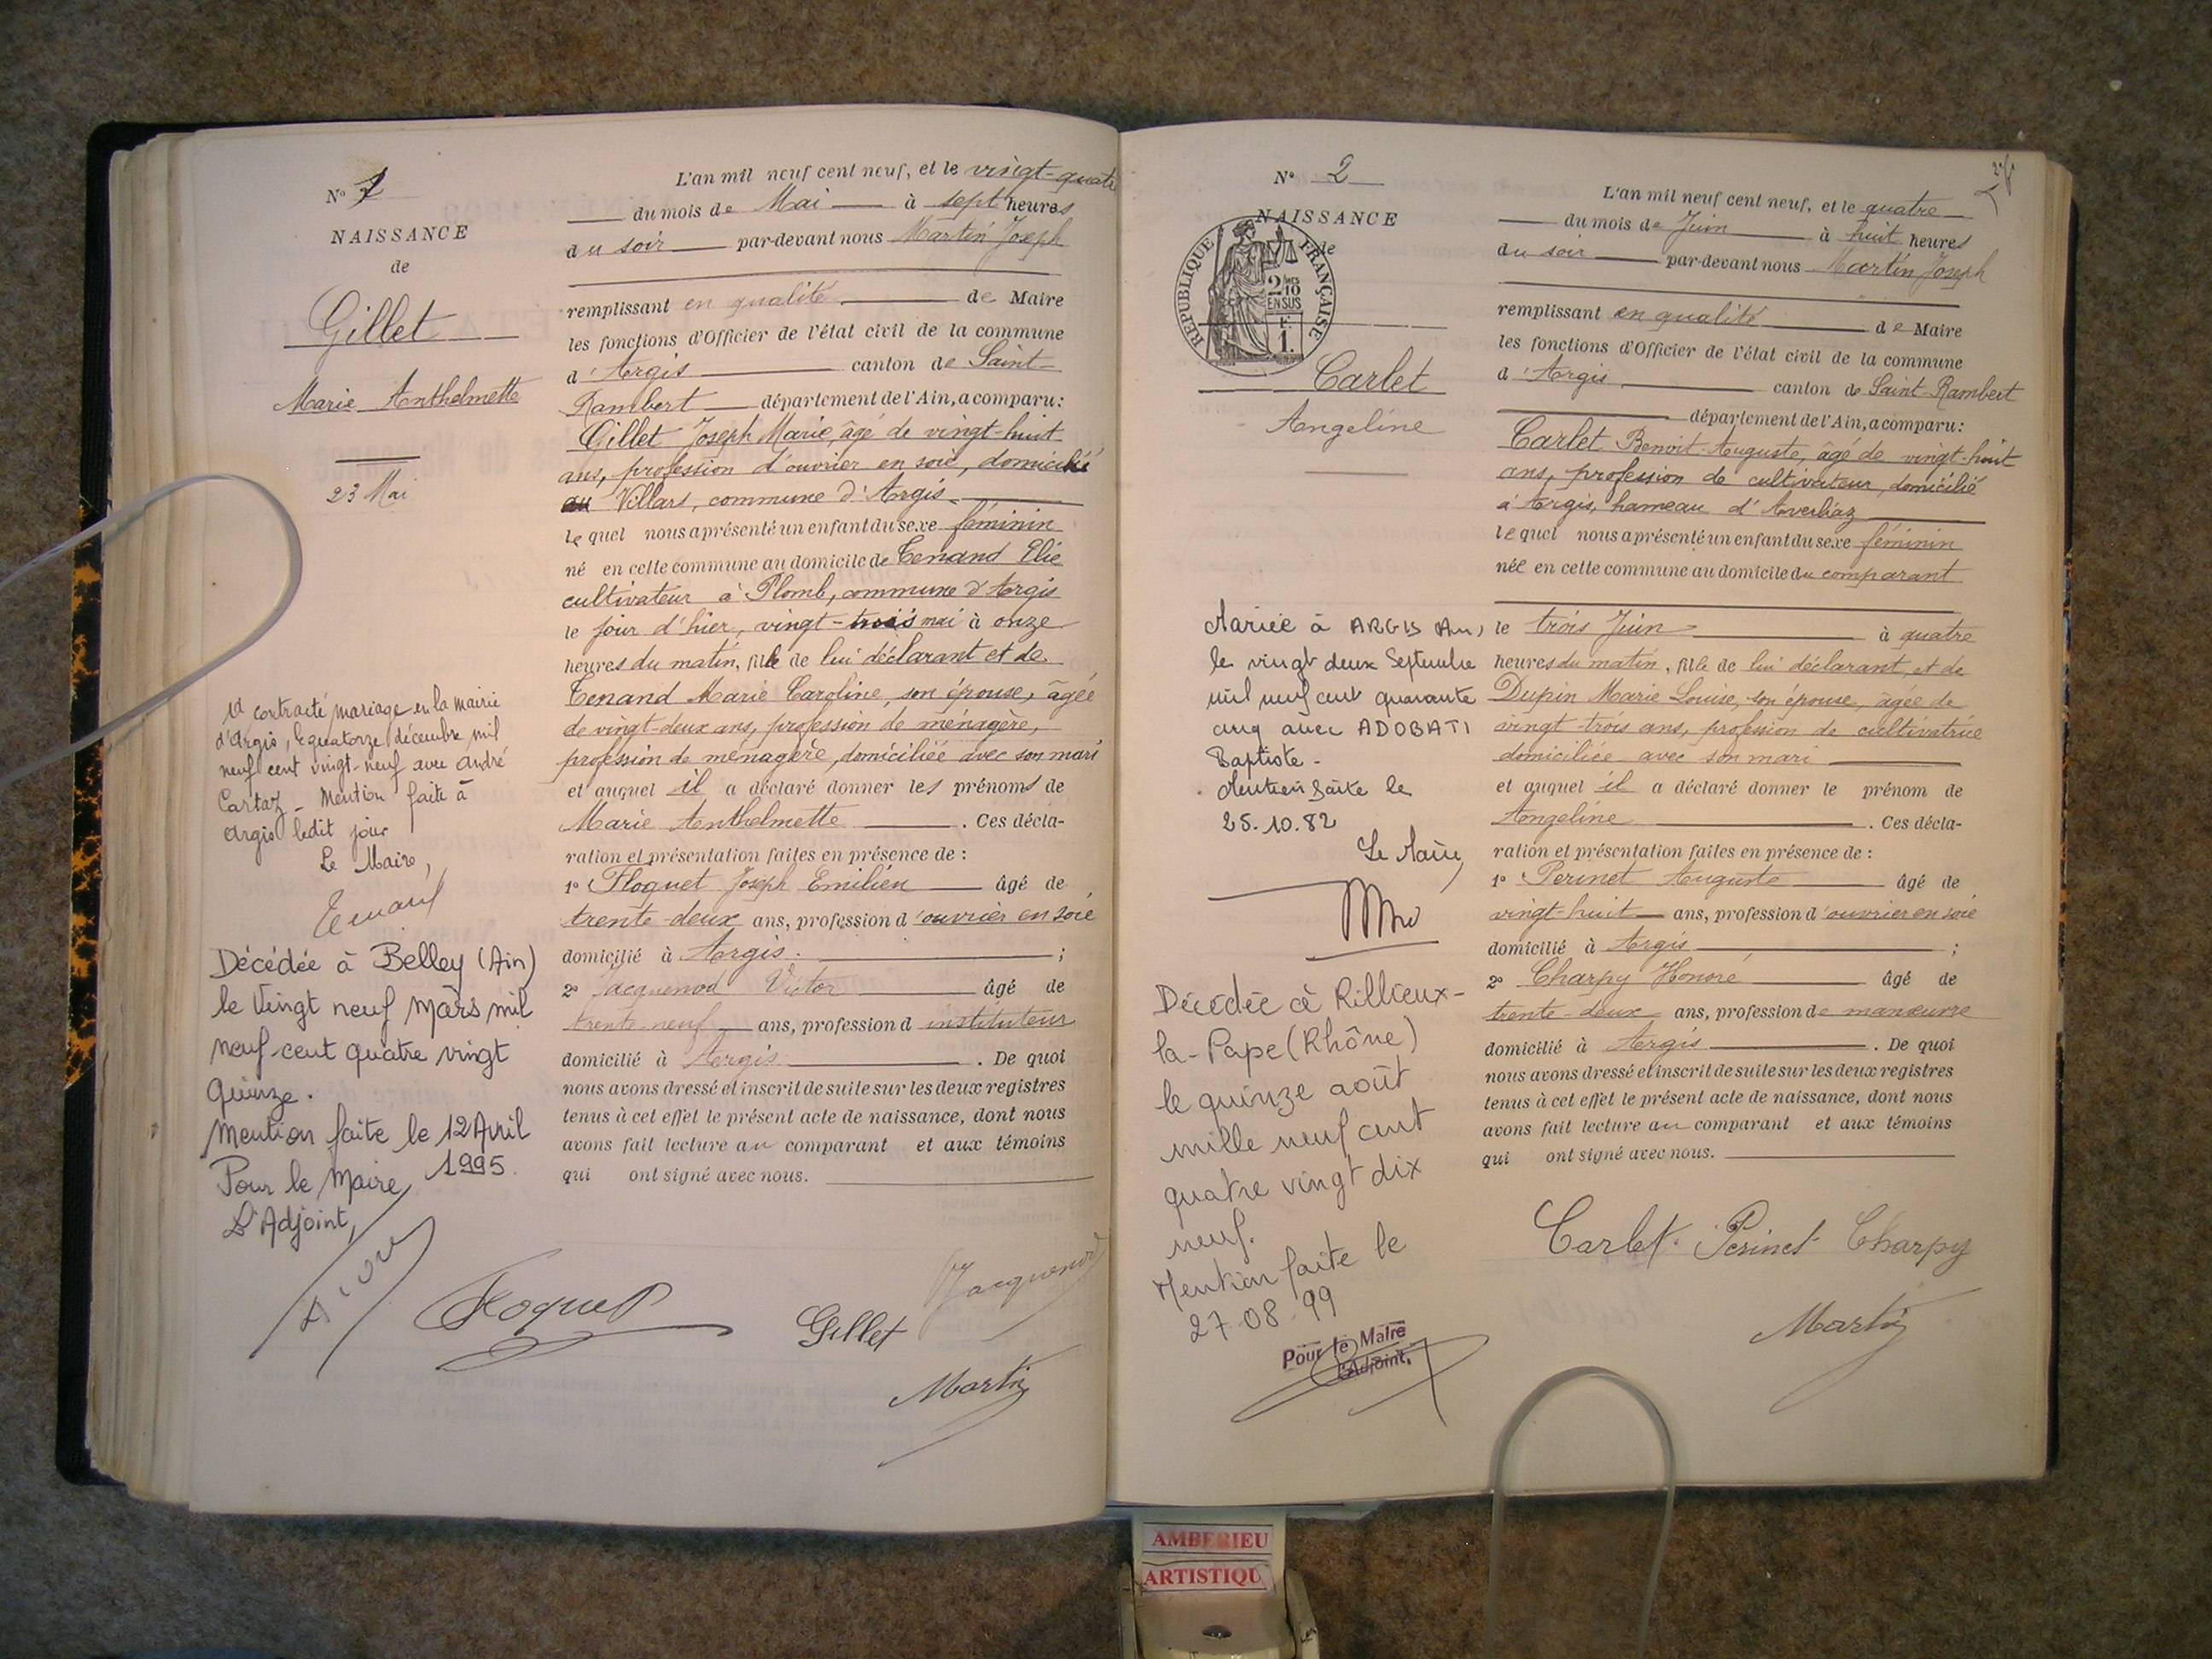 N° 1
NAISSANCE
de
Gillet
Marie Anthelmette
23 Mai
L'an mil neuf cent neuf, et le vingt-quatre
du mois de Mai à sept heures
du soir par-devant nous Martin Joseph
remplissant en qualité de Maire
les fonctions d'Officier de l'état civil de la commune
d'Argis canton de Saint-
Rambert département de l'Ain, a comparu:
Gillet Joseph Marie, âgé de vingt-huit
ans, profession d'ouvrier en soie, domicilié
au Villars, commune d'Argis
lequel nous a présenté un enfant du sexe féminin
né en cette commune au domicile de Tenand Elie
cultivateur à Plomb, commune d'Argis
le jour d'hier, vingt-trois mai à onze
heures du matin, fille de lui déclarant et de
Tenand Marie Caroline, son épouse, âgée
de vingt-deux ans, profession de ménagère,
profession de ménagère, domiciliée avec son mari
et auquel il a déclaré donner les prénoms de
Marie Anthelmette. Ces décla-
ration et présentation faites en présence de :
1° Floquet Joseph Emilien âgé de
trente-deux ans, profession d'ouvrier en soie
domicilié à Argis. ;
2° Jacquemod Victor âgé de
trente-neuf ans, profession d instituteur
domicilié à Argis. De quoi
nous avons dressé et inscrit de suite sur les deux registres
tenus à cet effet le présent acte de naissance, dont nous
avons fait lecture au comparant et aux témoins
qui ont signé avec nous.
contracté mariage en la mairie
d'Argis, le quatorze décembre mil
neuf cent vingt-neuf avec André
Cartaz - Mention faite à
Argis ledit jour
Le Maire,
Tenand
Décédée à Belley (Ain)
le Vingt neuf mars mil
neuf-cent quatre vingt
quinze.
Mention faite le 12 Avril
1995.
Pour le Maire,
L'Adjoint,
Floquet
Gillet
Jacquemod
Martin
N° 2
NAISSANCE
de
REPUBLIQUE FRANÇAISE
2/10
EN SUS
F.
1.
Carlet
Angeline
L'an mil neuf cent neuf, et le quatre
du mois de Juin à huit heures
du soir par-devant nous Martin Joseph
remplissant en qualité de Maire
les fonctions d'Officier de l'état civil de la commune
d'Argis canton de Saint-Rambert
département de l'Ain, a comparu:
Carlet Benoit-Auguste, âgé de vingt-huit
ans, profession de cultivateur, domicilié
à Argis, hameau d'Averliaz
lequel nous a présenté un enfant du sexe féminin
née en cette commune au domicile du comparant
le trois Juin à quatre
heures du matin, fille de lui déclarant, et de
Dupin Marie Louise, son épouse, âgée de
vingt-trois ans, profession de cultivatrice
domiciliée avec son mari
et auquel il a déclaré donner le prénom de
Angeline. Ces décla-
ration et présentation faites en présence de :
1° Perinet Auguste âgé de
vingt-huit ans, profession d'ouvrier en soie
domicilié à Argis ;
2° Charpy Honoré âgé de
trente-deux ans, profession de manœuvre
domicilié à Argis. De quoi
nous avons dressé et inscrit de suite sur les deux registres
tenus à cet effet le présent acte de naissance, dont nous
avons fait lecture au comparant et aux témoins
qui ont signé avec nous.
Mariée à ARGIS (Ain)
le vingt deux Septembre
mil neuf cent quarante
cinq avec ADOBATI
Baptiste -
Mention faite le
25.10.82
Le Maire,
Décédée à Rillieux-
la-Pape (Rhône)
le quinze août
mille neuf cent
quatre vingt dix
neuf.
Mention faite le
27-08-99
Pour le Maire
L'Adjoint,
Carlet Perinet Charpy
Martin
AMBERIEU
ARTISTIQU